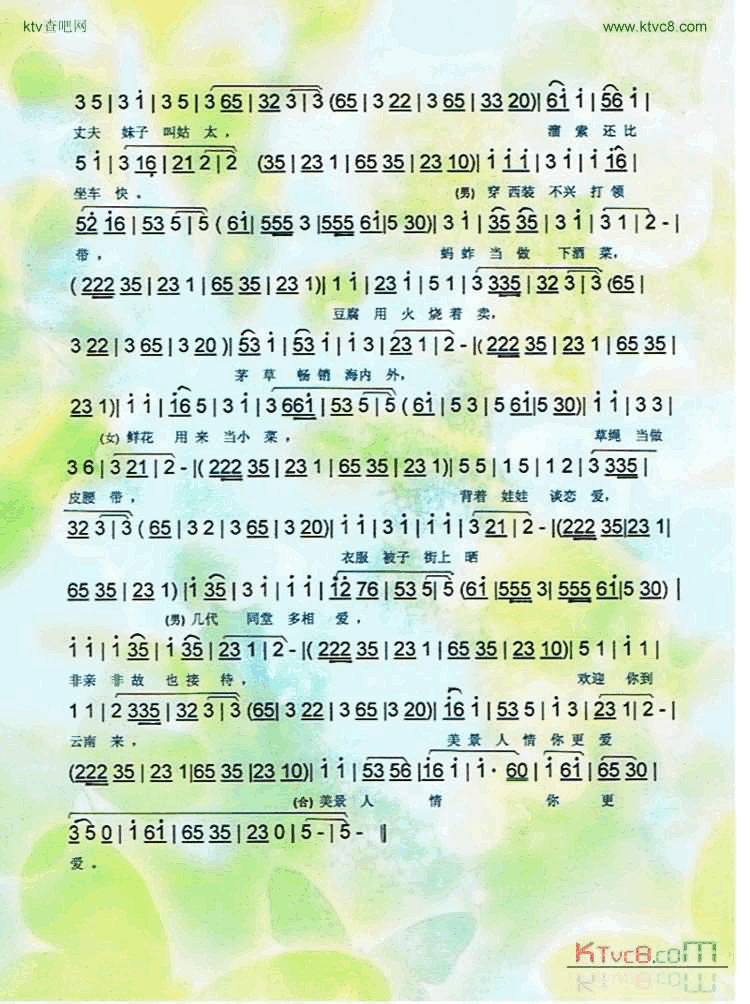 ktv查吧网 www.ktvc8.com
3 5 | 3 i | 3 5 | 3 65 | 32 3 | 3 (65 | 3 22 | 3 65 | 33 20) | 61 i | 56 i |
丈夫 妹子 叫姑 太, 溜 索 还比
5 i | 3 16 | 21 2 | 2 (35 | 23 1 | 65 35 | 23 10) | i i i | 3 i | i 16 |
坐车 快。 (男) 穿西装 不兴 打领
52 16 | 53 5 | 5 (61 | 555 3 | 555 61 | 5 30) | 3 i | 35 35 | 3 i | 3 1 | 2 - |
带, 蚂蚱 当 做 下酒 菜,
(222 35 | 23 1 | 65 35 | 23 1) | 1 i | 23 i | 5 1 | 3 335 | 32 3 | 3 (65 |
豆腐 用 火 烧着 卖,
3 22 | 3 65 | 3 20) | 53 i | 53 i | i 3 | 23 1 | 2 - | (222 35 | 23 1 | 65 35 |
茅 草 畅 销 海内 外,
23 1) | i i | i6 5 | 3 i | 3 661 | 53 5 | 5 (61 | 5 3 | 5 61 | 5 30) | i i | 3 3 |
(女) 鲜花 用 来 当小 菜, 草绳 当做
3 6 | 3 21 | 2 - | (222 35 | 23 1 | 65 35 | 23 1) | 5 5 | 1 5 | 1 2 | 3 335 |
皮腰 带, 背着 娃娃 谈恋 爱,
32 3 | 3 (65 | 3 2 | 3 65 | 3 20) | i i | 3 i | i i | 3 21 | 2 - | (222 35 | 23 1 |
衣服 被子 街上 晒
65 35 | 23 1) | i 35 | 3 i | i i | i2 76 | 53 5 | 5 (61 | 555 3 | 555 61 | 5 30) |
(男) 几代 同堂 多相 爱,
i i | i 35 | i 35 | 23 1 | 2 - | (222 35 | 23 1 | 65 35 | 23 10) | 5 1 | i i |
非亲 非故 也接 待, 欢迎 你到
1 1 | 2 335 | 32 3 | 3 (65 | 3 22 | 3 65 | 3 20) | i6 i | 53 5 | i 3 | 23 1 | 2 - |
云南 来, 美 景 人 情 你更 爱
(222 35 | 23 1 | 65 35 | 23 10) | i i | 53 56 | i6 i | i· 60 | i 61 | 65 30 |
(合) 美景 人 情 你 更
3 5 0 | i 61 | 65 35 | 23 0 | 5 - | 5 - ‖
爱。
KTvc8.com